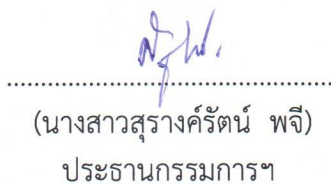 (นางสาวสุรางค์รัตน์ พจี)
ประธานกรรมการฯ